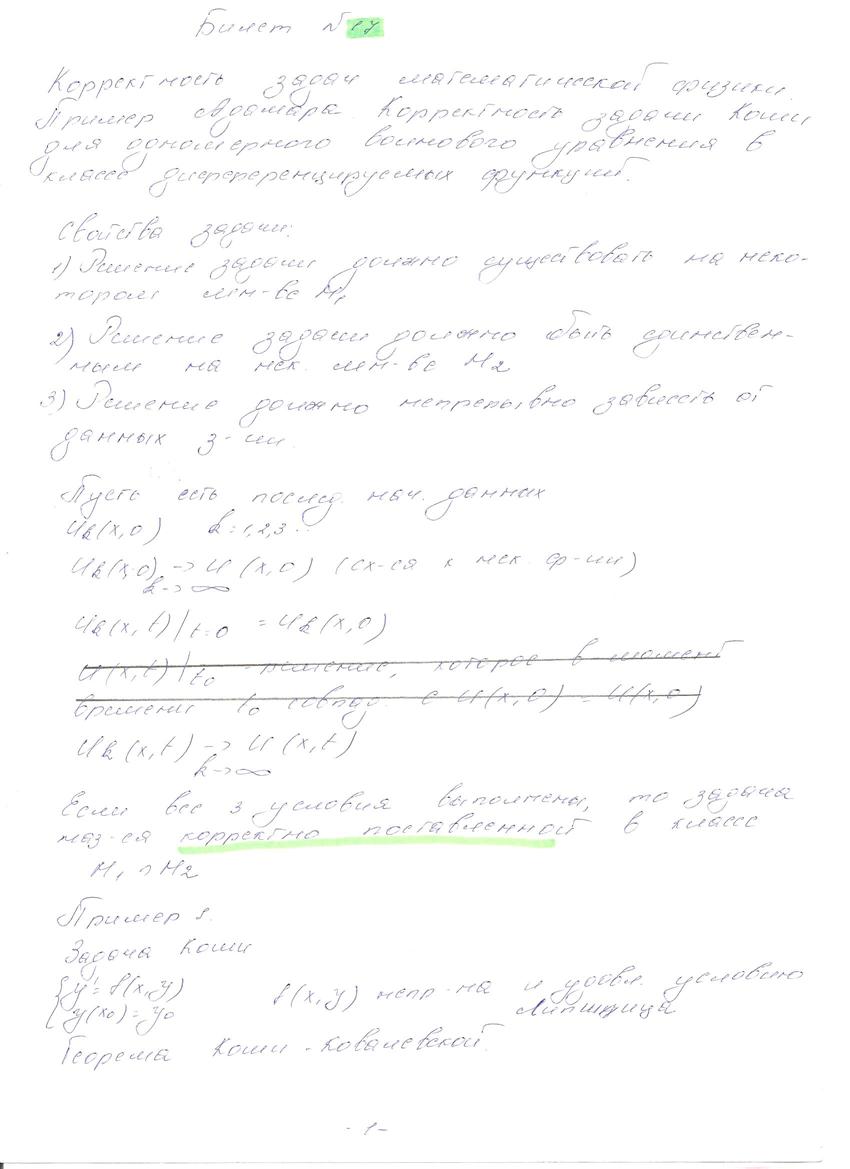 Билет № 17
Корректность задач математической физики.
Пример Адамара. Корректность задачи Коши
для одномерного волнового уравнения в
классе дифференцируемых функций.
Свойства задачи:
1) Решение задачи должно существовать на неко-
тором мн-ве M₁
2) Решение задачи должно быть единствен-
ным на нек. мн-ве M₂
3) Решение должно непрерывно зависеть от
данных з-чи.
Пусть есть послед. нач. данных
Uk(x,0) k=1,2,3...
Uk(x,0) → U(x,0) (сх-ся к нек. ф-ии)
k→∞
Uk(x,t)|t=0 = Uk(x,0)
U(x,t)|t₀ - решение, которое в момент
времени t₀ совпад. с U(x,0) = U(x,0)
Uk(x,t) → U(x,t)
k→∞
Если все 3 условия выполнены, то задача
наз-ся корректно поставленной в классе
M₁ ∩ M₂
Пример 1.
Задача Коши
{ y' = f(x,y) f(x,y) непр-на и удовл. условию
y(x₀) = y₀ Липшица
Теорема Коши - Ковалевской.
- 1 -